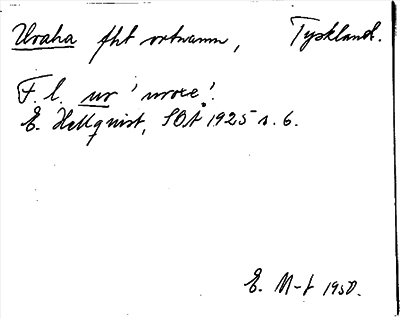 Uraha fht ortnamn, Tyskland.
F. l. ur 'uroxe'.
E. Hellquist, SOÅ 1925 s. 6.
E. M-t 1950.